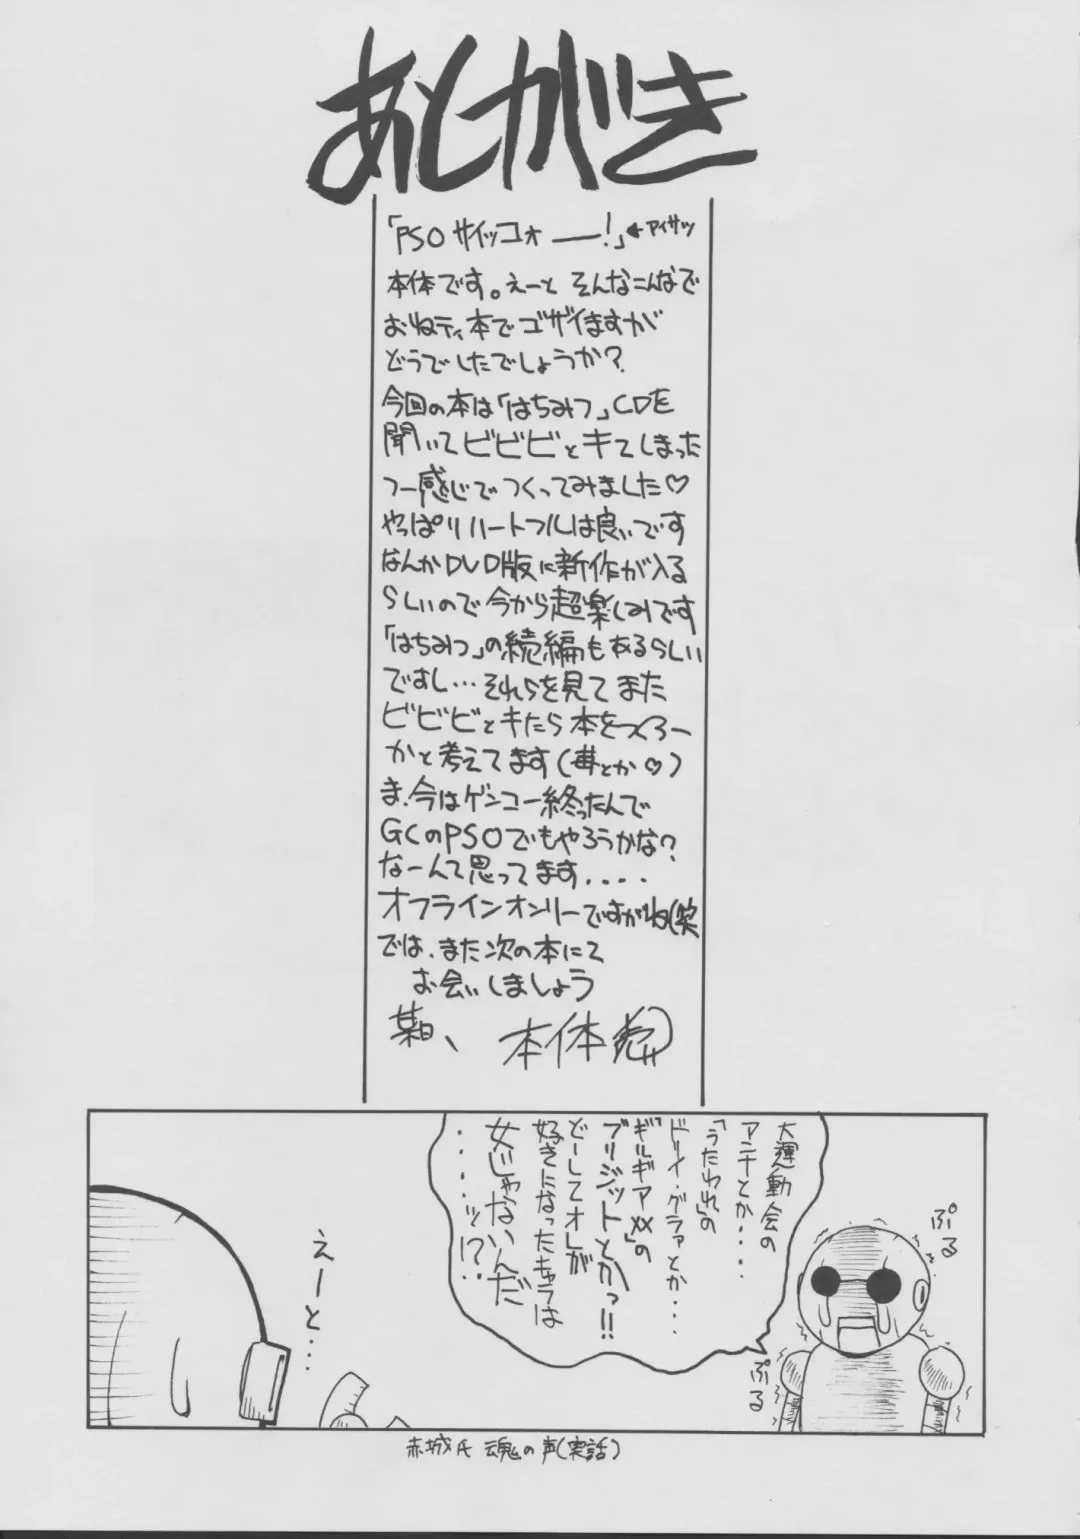 あとがき
「PSO サイッコォ――!」←アイサツ
本体です。えーと そんなこんなで
おねティ本でゴザイますが
どうでしたでしょうか?
今回の本は「はちみつ」CDを
聞いてビビビとキてしまった
つー感じでつくってみました♡
やっぱりハートフルは良いです
なんかDVD版に新作が入る
らしいので今から超楽しみです
「はちみつ」の続編もあるらしい
ですし…それらを見てまた
ビビビとキたら本をつくろー
かと考えてます(苺とか♡)
ま、今はゲンコー終ったんで
GCのPSOでもやろうかな?
なーんて思ってます....
オフラインオンリーですがね(笑
では、また次の本にて
お会いしましょう
某日、 本体
大運動会の
アンナとか・・・・
「うたわれ」の
ドリィ・グラァとか・・・
「ギルギアXX」の
ブリジットとかっ!!
どーしてオレが
好きになったキャラは
女じゃないんだ
・・・・・・ッ!?・・
ぷる
ぷる
えーと・・・
赤城氏 魂の声(実話)